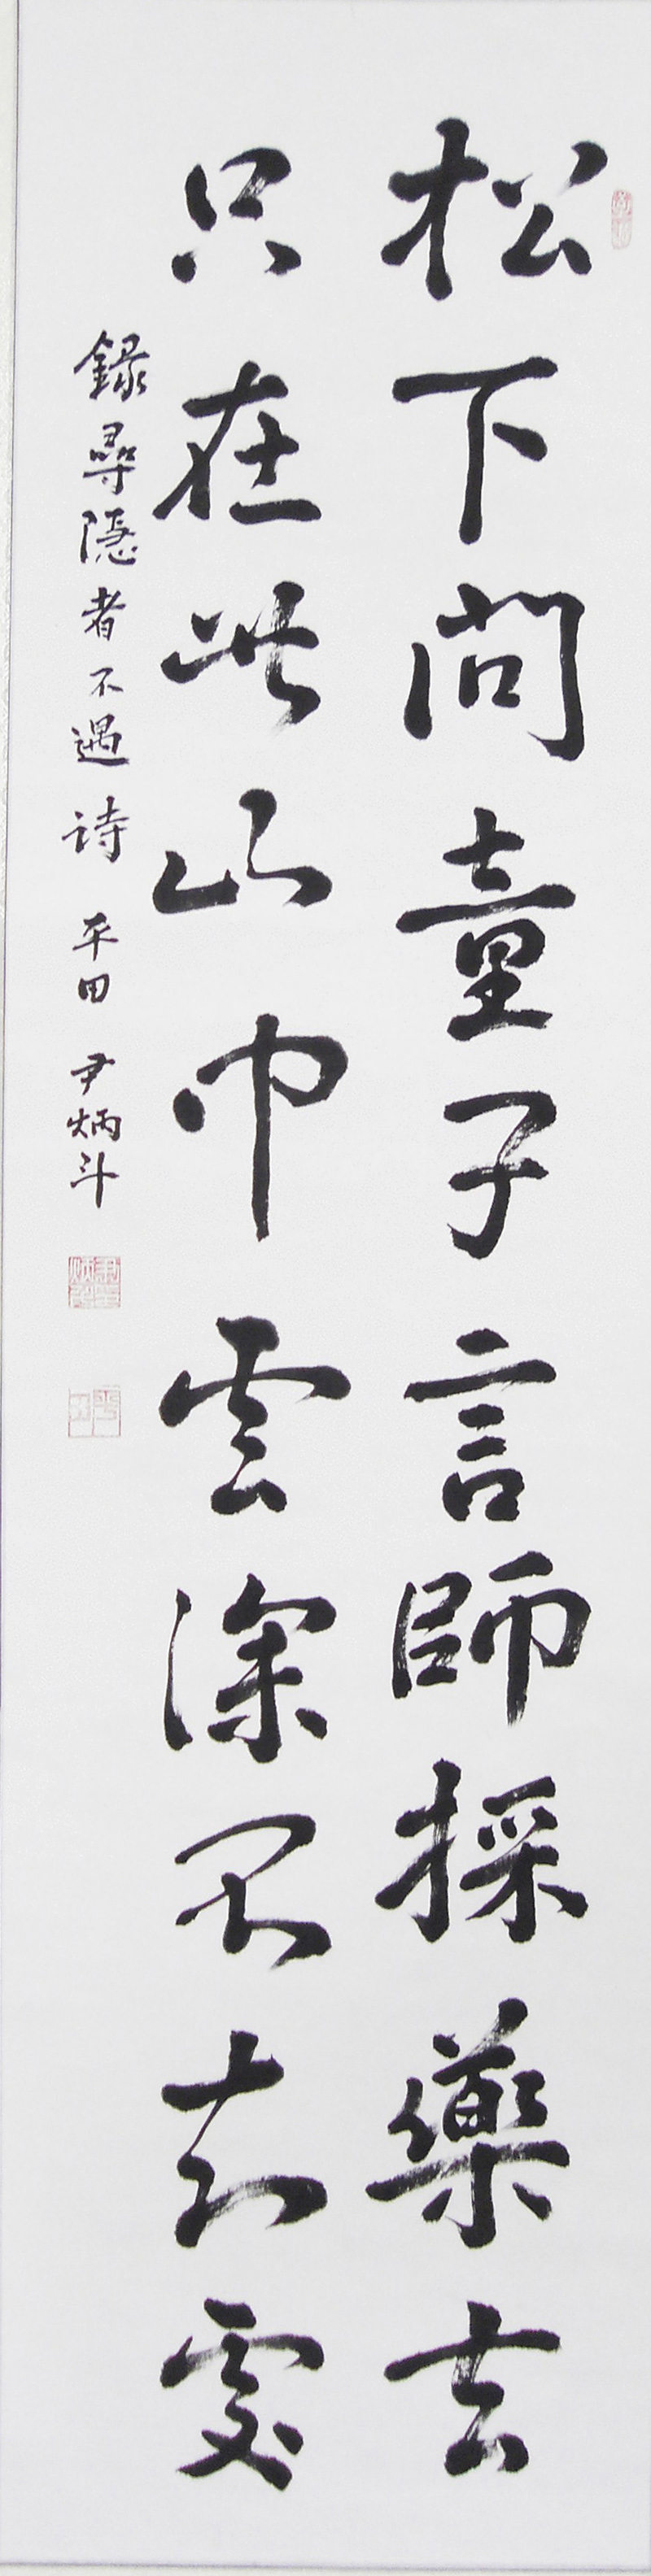 松下問童子言師採藥去
只在此山中雲深不知處
錄尋隱者不遇詩 平田 尹炳斗